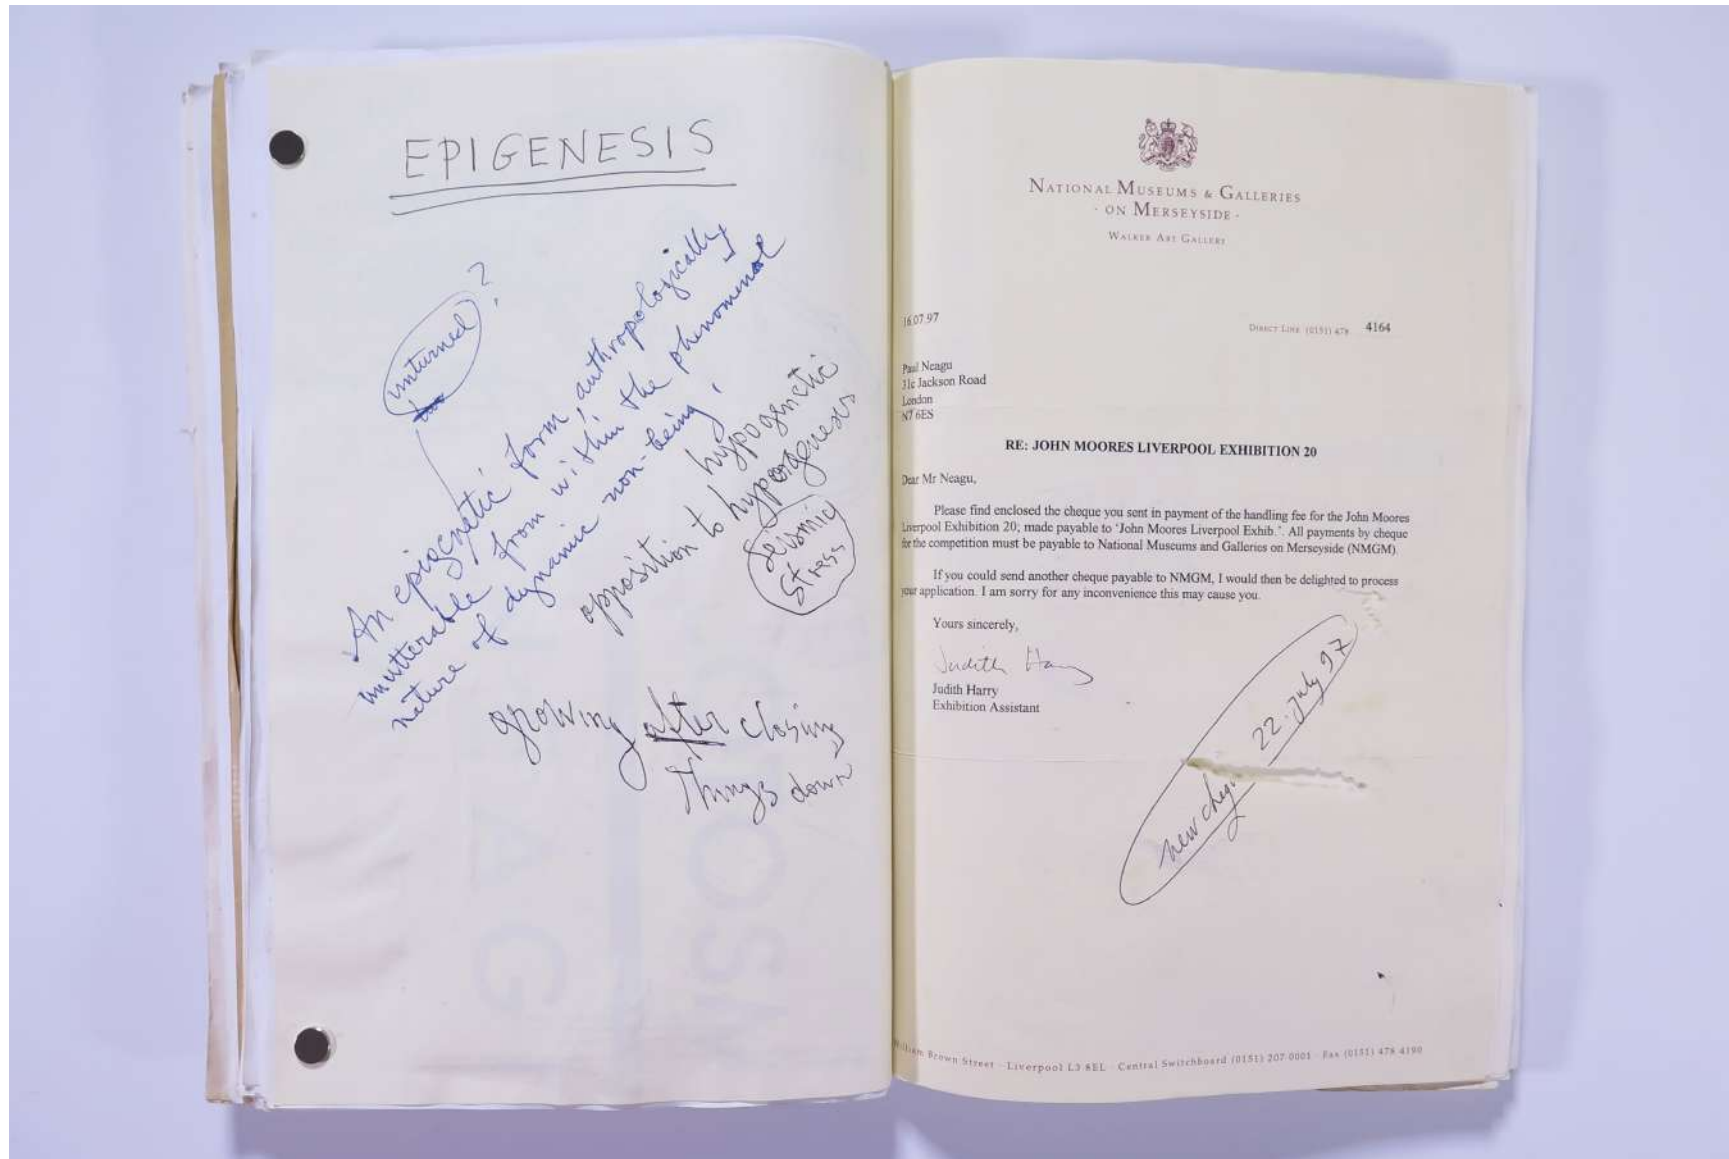 EPIGENESIS
unturned ?
An epigenetic form, anthropologically
unutterable from within the phenomenal
nature of dynamic non-being,
hypogenetic
opposition to hypogenesis
Seismic
Stress
growing after closing
things down
NATIONAL MUSEUMS & GALLERIES
· ON MERSEYSIDE ·
WALKER ART GALLERY
16 07 97
DIRECT LINE (0151) 478 4164
Paul Neagu
31c Jackson Road
London
N7 6ES
RE: JOHN MOORES LIVERPOOL EXHIBITION 20
Dear Mr Neagu,
Please find enclosed the cheque you sent in payment of the handling fee for the John Moores
Liverpool Exhibition 20; made payable to 'John Moores Liverpool Exhib.'. All payments by cheque
for the competition must be payable to National Museums and Galleries on Merseyside (NMGM).
If you could send another cheque payable to NMGM, I would then be delighted to process
your application. I am sorry for any inconvenience this may cause you.
Yours sincerely,
Judith Harry
Judith Harry
Exhibition Assistant
new cheque 22. July 97
William Brown Street · Liverpool L3 8EL · Central Switchboard (0151) 207 0001 · Fax (0151) 478 4190